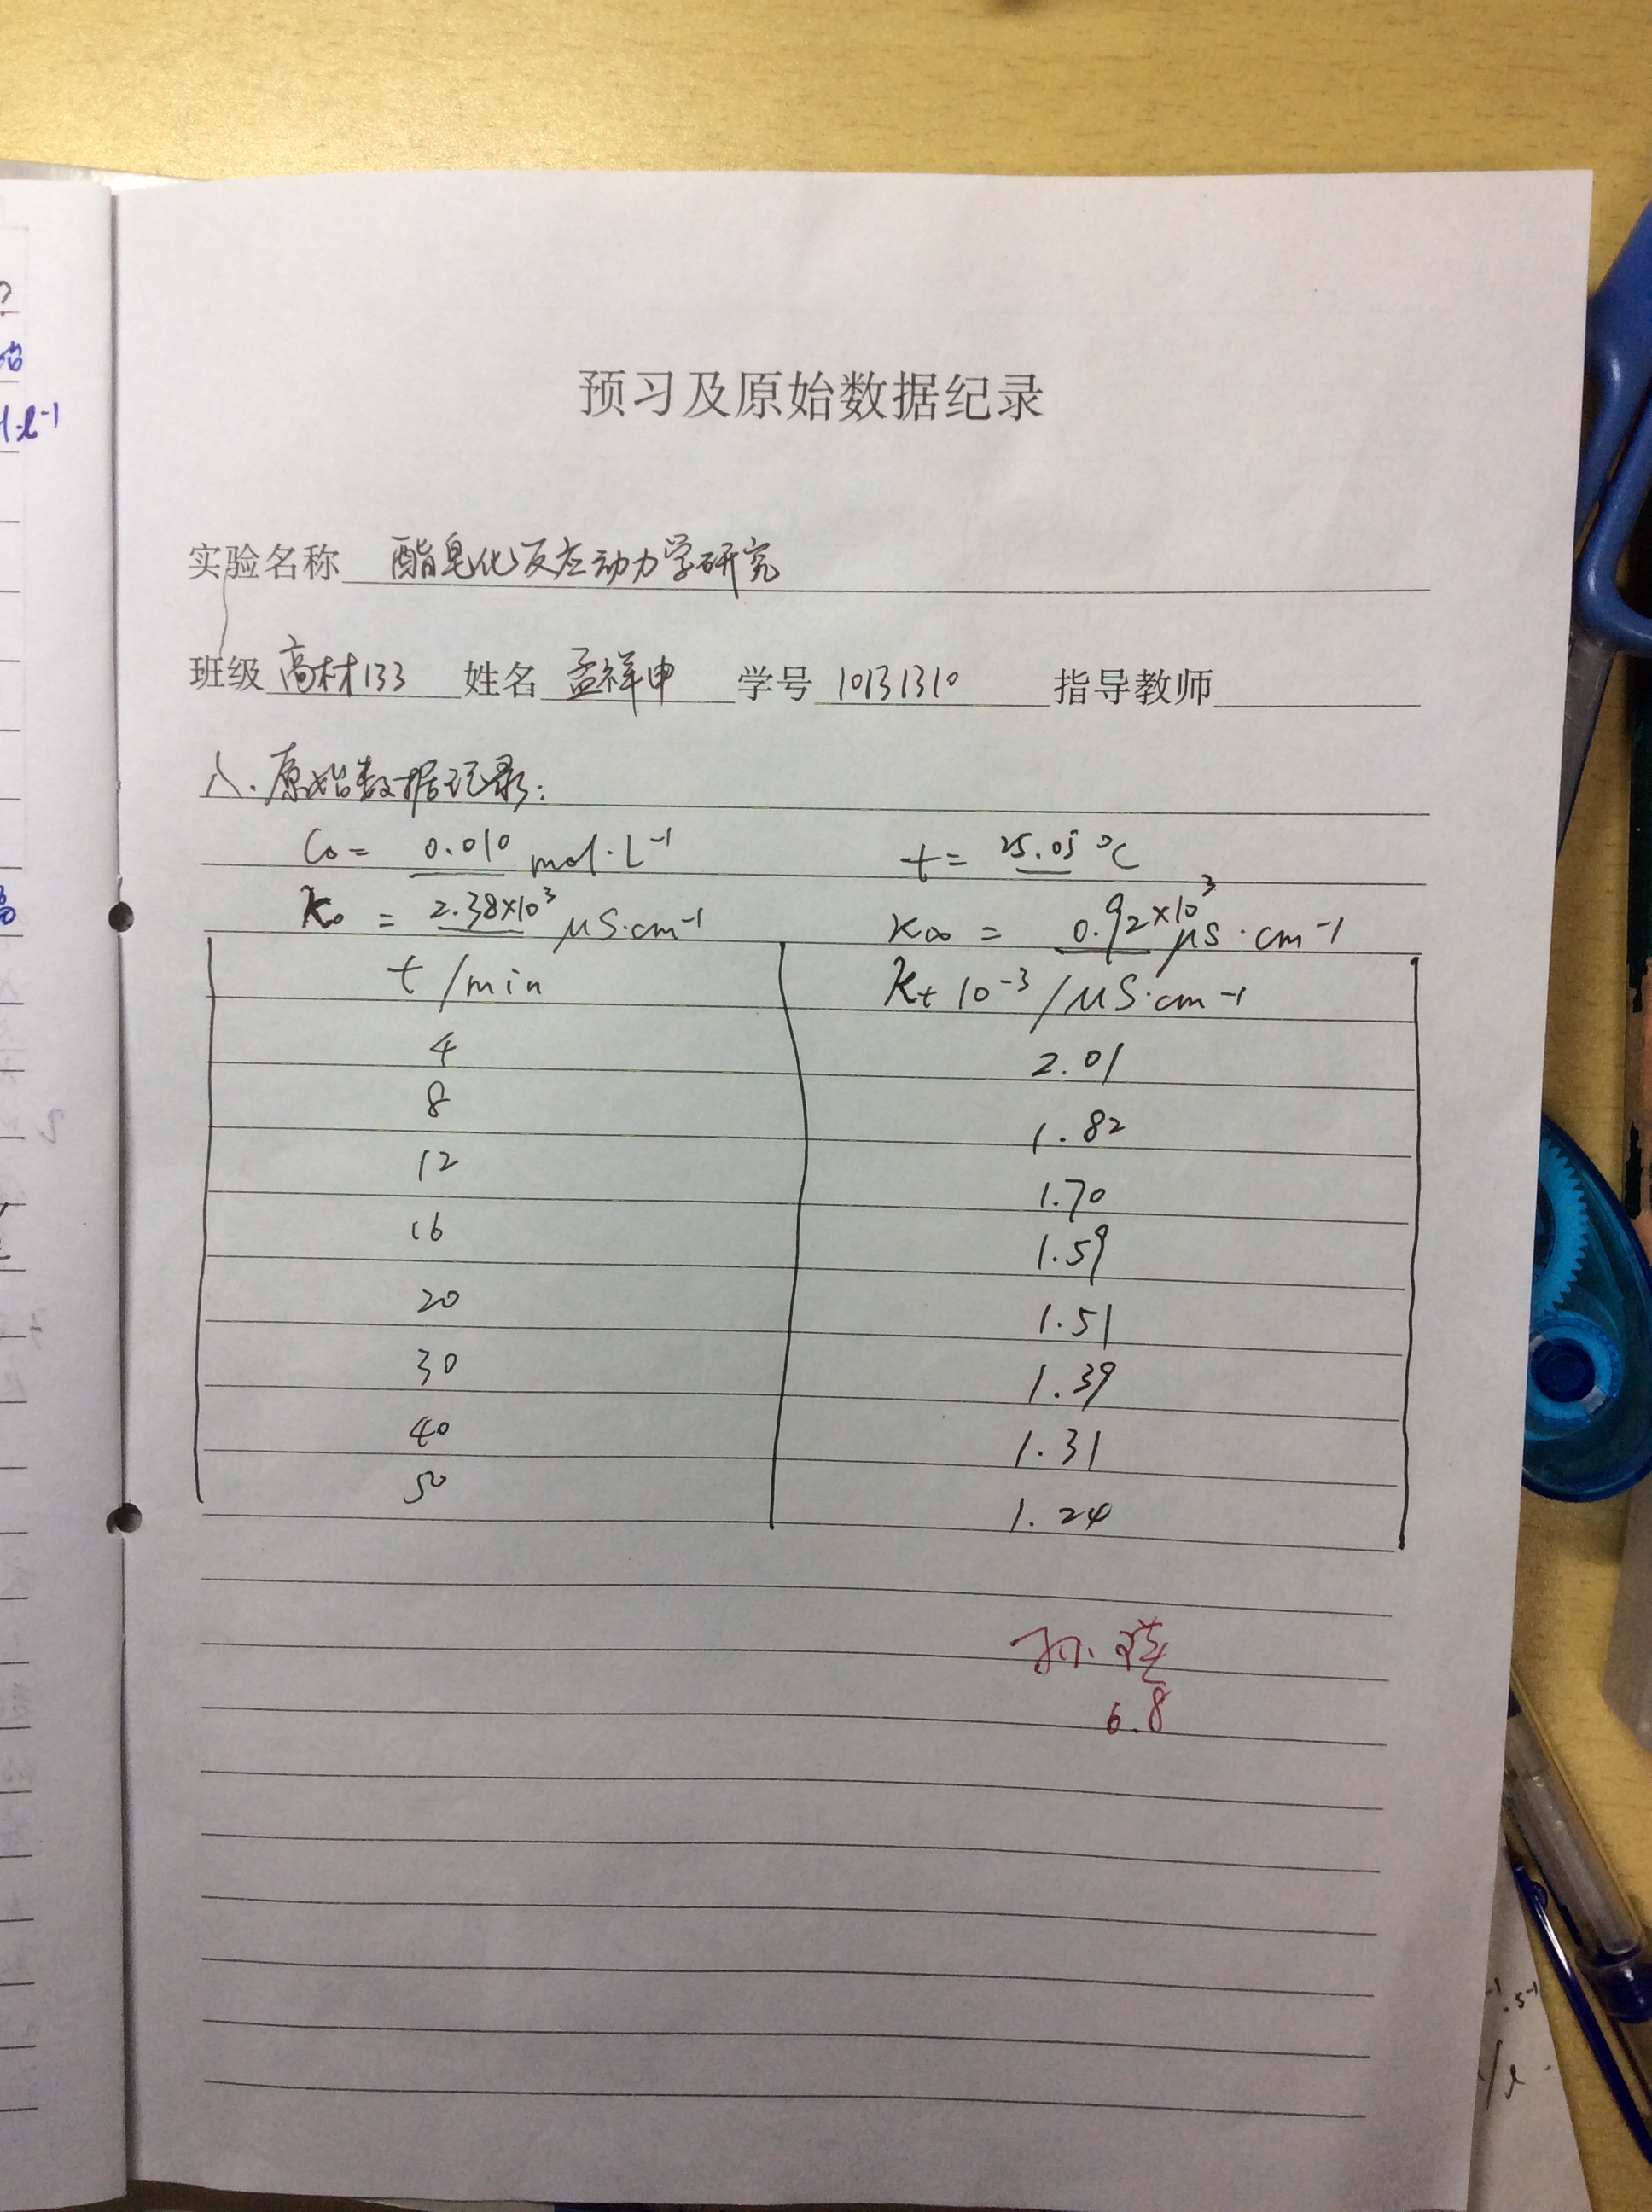 预习及原始数据纪录
实验名称 酯皂化反应动力学研究
班级 高材133 姓名 孟祥申 学号 10131310 指导教师
八.原始数据记录:
C₀= 0.010 mol·L⁻¹ t= 25.05 ℃
κ₀ = 2.38×10³ μS·cm⁻¹ κ∞ = 0.92×10³ μS·cm⁻¹
t/min κt 10⁻³/μS·cm⁻¹
4 2.01
8 1.82
12 1.70
16 1.59
20 1.51
30 1.39
40 1.31
50 1.24
6.8